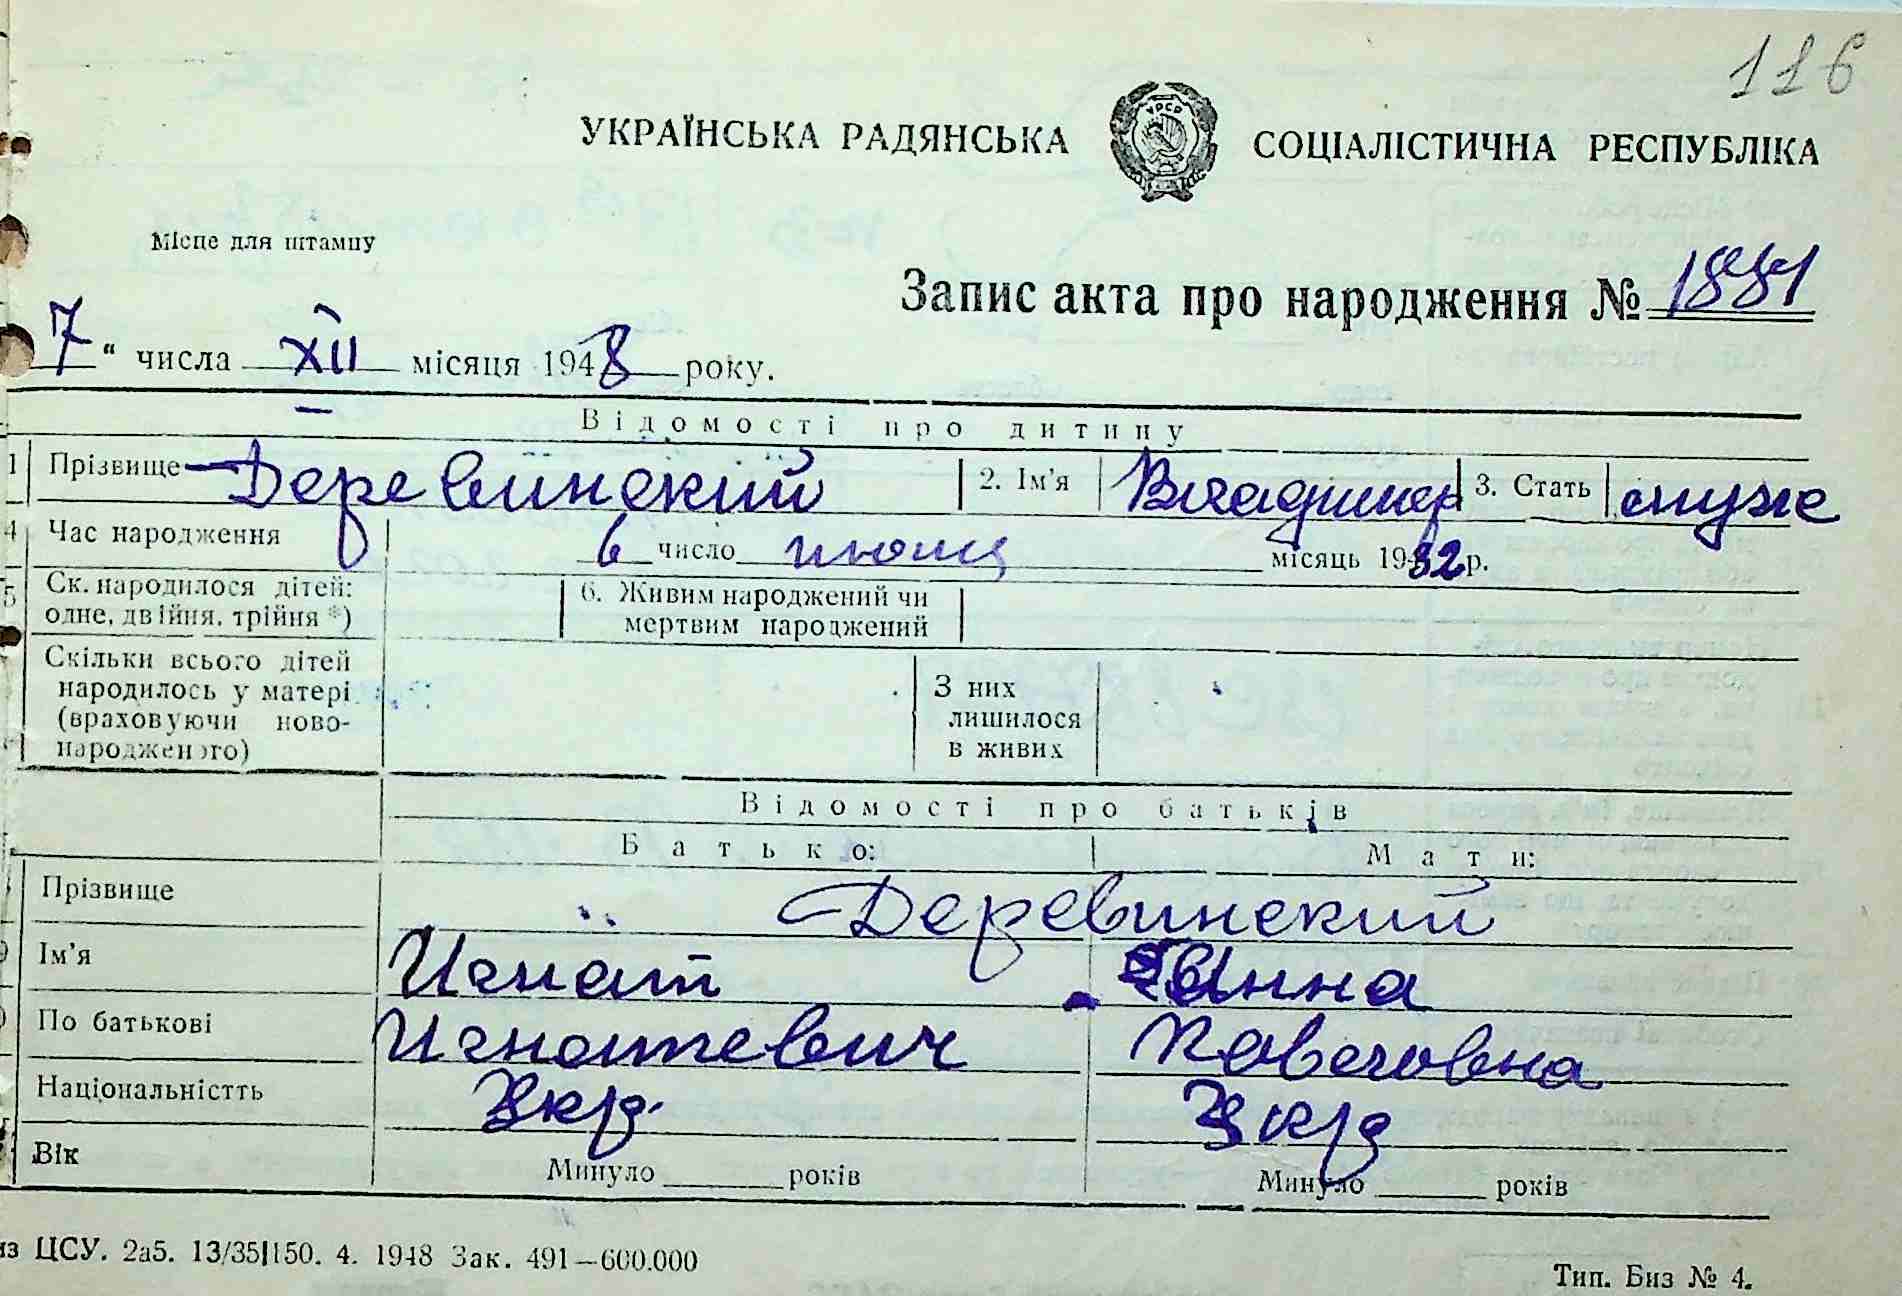 116
УКРАЇНСЬКА РАДЯНСЬКА СОЦІАЛІСТИЧНА РЕСПУБЛІКА
УРСР
Місце для штампу
Запис акта про народження № 1881
7 " числа XII місяця 1948 року.
Відомості про дитину
1 Прізвище Деревинский 2. Ім'я Владимир 3. Стать муже
4 Час народження 6 число июля місяць 1932 р.
5 Ск. народилося дітей: одне, двійня, трійня *) 6. Живим народжений чи мертвим народжений
Скільки всього дітей народилось у матері (враховуючи ново-народженого) З них лишилося в живих
Відомості про батьків
Батько: Мати:
Прізвище Деревинский
Ім'я Игнат Анна
По батькові Игнатевич Павловна
Національністть Укр. Укр
Вік Минуло років Минуло років
из ЦСУ. 2а5. 13/35|150. 4. 1948 Зак. 491—600.000
Тип. Биз № 4.